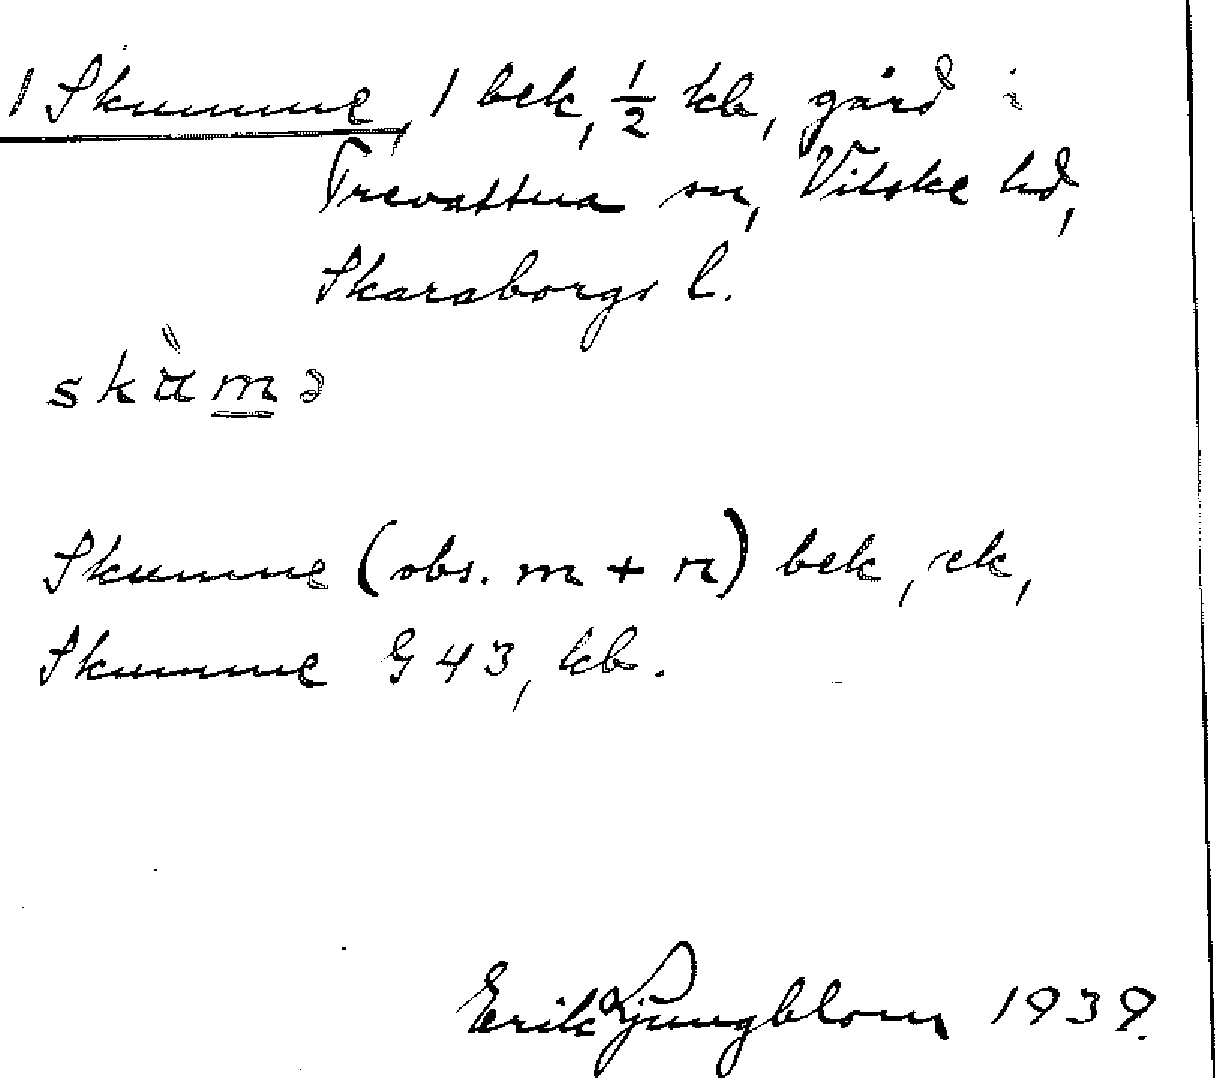 1 Skumme, 1 bek, ½ kb, gård i
Trevattna sn, Vilske hd,
Skaraborgs l.
skùmə
Skumne (obs. m + n) bek, ek,
Skumme G 43, kb.
Erik Ljungblom 1939.